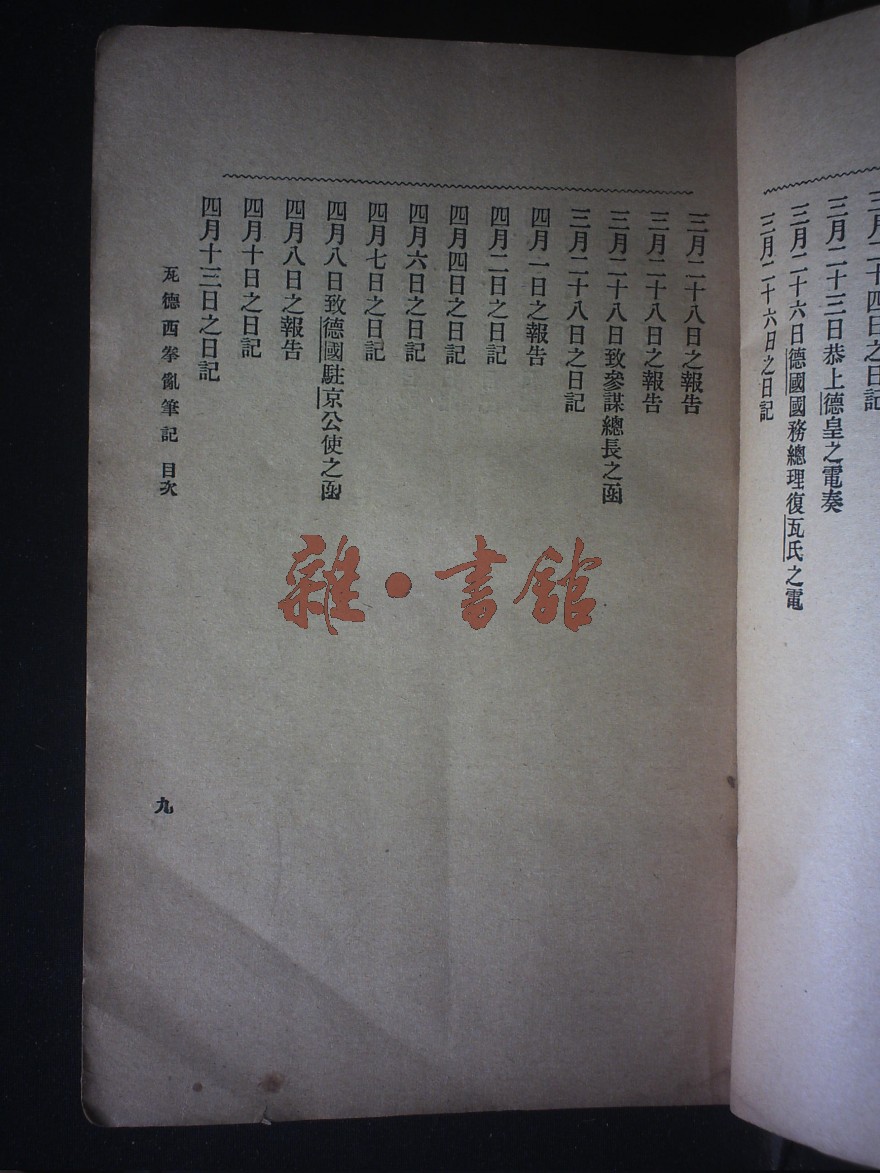 三月二十四日之日記
三月二十三日恭上德皇之電奏
三月二十六日德國國務總理復瓦氏之電
三月二十六日之日記
三月二十八日之報告
三月二十八日之報告
三月二十八日致參謀總長之函
三月二十八日之日記
四月一日之報告
四月二日之日記
四月四日之日記
四月六日之日記
四月七日之日記
四月八日致德國駐京公使之函
四月八日之報告
四月十日之日記
四月十三日之日記
瓦德西拳亂筆記 目次
九
雜·書館